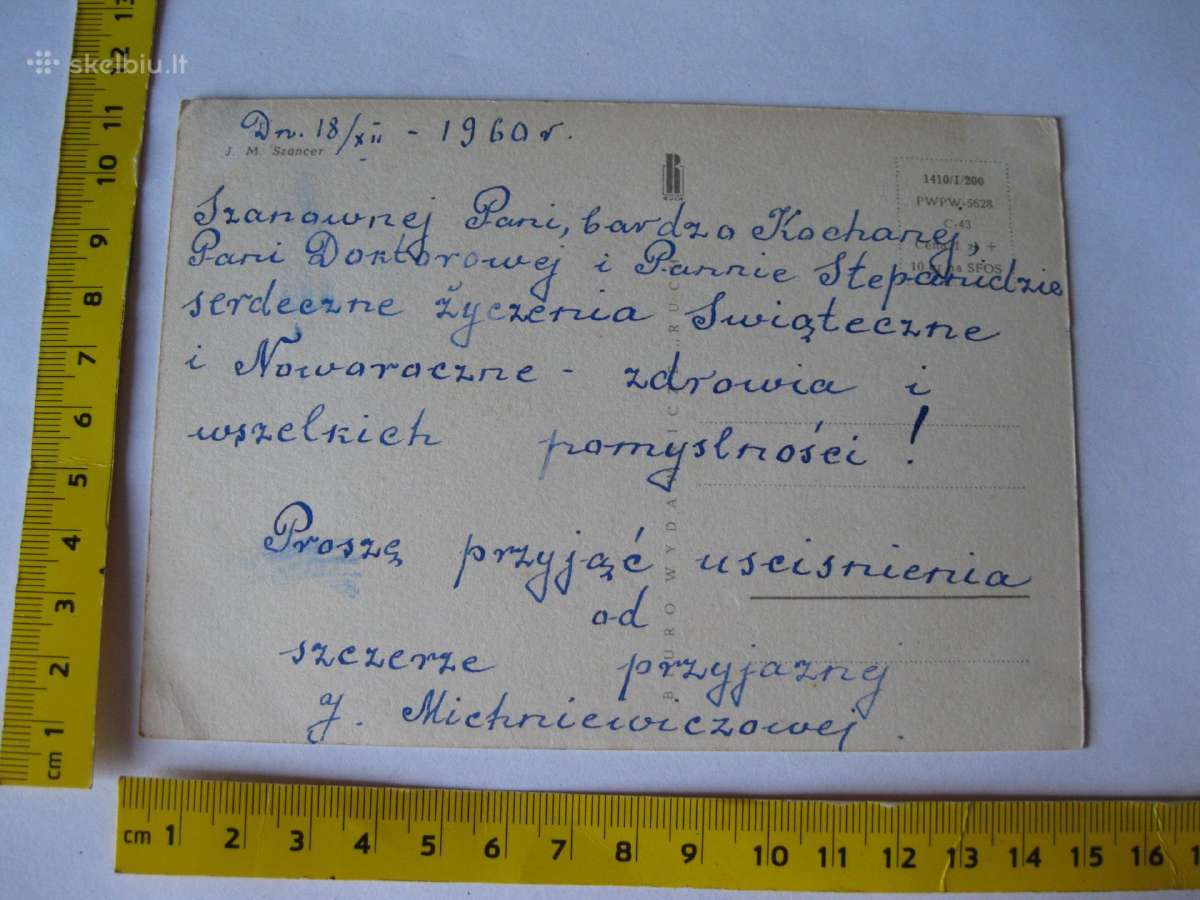 skelbiu.lt
Dn. 18/XII - 1960 r.
J. M. Szancer
RUCH
1410/I/200
PWPW-5628
C-43
Cena zł +
10 na SFOS
Szanownej Pani, bardzo Kochanej,
Pani Doktorowej i Pannie Stepanidzie
serdeczne życzenia Swiąteczne
i Nowaroczne - zdrowia i
wszelkich pomyslności!
Proszę przyjąć usciśnienia
od
szczerze przyjaznej
J. Michniewiczowej.
BIURO WYDAWNICZE „RUCH”
cm 1 2 3 4 5 6 7 8 9 10 11 12 13
cm 1 2 3 4 5 6 7 8 9 10 11 12 13 14 15 16 1